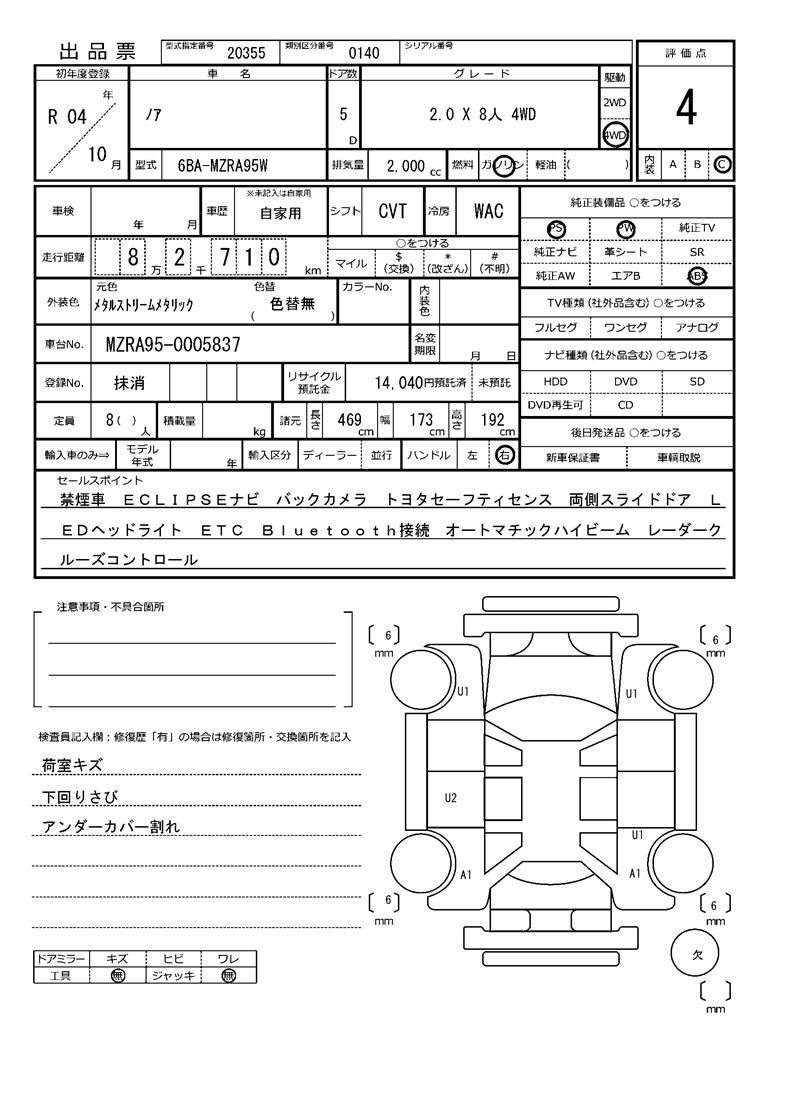 出品票 型式指定番号 20355 類別区分番号 0140 シリアル番号
評価点
4
内装 A B C
初年度登録 車名 ドア数 グレード 駆動
R 04 年 10 月 ﾉｱ 5 D 2.0 X 8人 4WD 2WD 4WD
型式 6BA-MZRA95W 排気量 2,000 cc 燃料 ガソリン 軽油 ( )
車検 年 月 車歴 ※未記入は自家用 自家用 シフト CVT 冷房 WAC
走行距離 8 万 2 千 7 1 0 km ○をつける マイル $(交換) *(改ざん) #(不明)
外装色 元色 ﾒﾀﾙｽﾄﾘｰﾑﾒﾀﾘｯｸ 色替 ( 色替無 ) カラーNo. 内装色
車台No. MZRA95-0005837 名変期限 月 日
登録No. 抹消 リサイクル預託金 14,040円預託済 未預託
定員 8( ) 人 積載量 kg 諸元 長さ 469 cm 幅 173 cm 高さ 192 cm
輸入車のみ⇒ モデル年式 年 輸入区分 ディーラー 並行 ハンドル 左 右
純正装備品 ○をつける
PS PW 純正TV
純正ナビ 革シート SR
純正AW エアB ABS
TV種類(社外品含む)○をつける
フルセグ ワンセグ アナログ
ナビ種類(社外品含む)○をつける
HDD DVD SD
DVD再生可 CD
後日発送品 ○をつける
新車保証書 車輌取説
セールスポイント
禁煙車 ＥＣＬＩＰＳＥナビ バックカメラ トヨタセーフティセンス 両側スライドドア Ｌ
ＥＤヘッドライト ＥＴＣ Ｂｌｕｅｔｏｏｔｈ接続 オートマチックハイビーム レーダーク
ルーズコントロール
注意事項・不具合箇所
検査員記入欄：修復歴「有」の場合は修復箇所・交換箇所を記入
荷室キズ
下回りさび
アンダーカバー割れ
ドアミラー キズ ヒビ ワレ
工具 無 ジャッキ 無
〔 6 〕 mm 〔 6 〕 mm
U1 U1
U2
U1
A1 A1
〔 6 〕 mm 〔 6 〕 mm
欠
〔 〕 mm